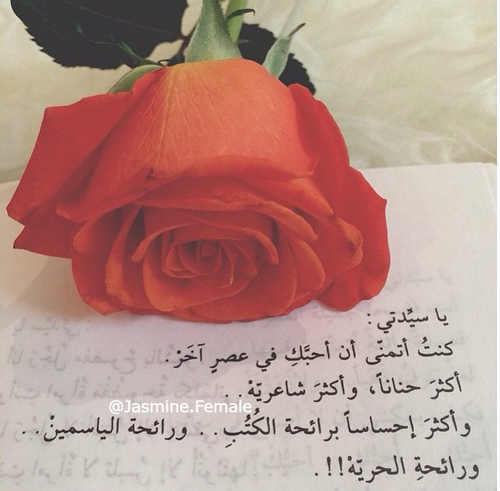 يا سيِّدتي:
كنتُ أتمنّى أن أحبَّكِ في عصرٍ آخَرْ.
أكثرَ حناناً، وأكثرَ شاعريّهْ..
@Jasmine.Female
وأكثرَ إحساساً برائحة الكُتُبِ.. ورائحة الياسمينْ..
ورائحةِ الحريّهْ!!.